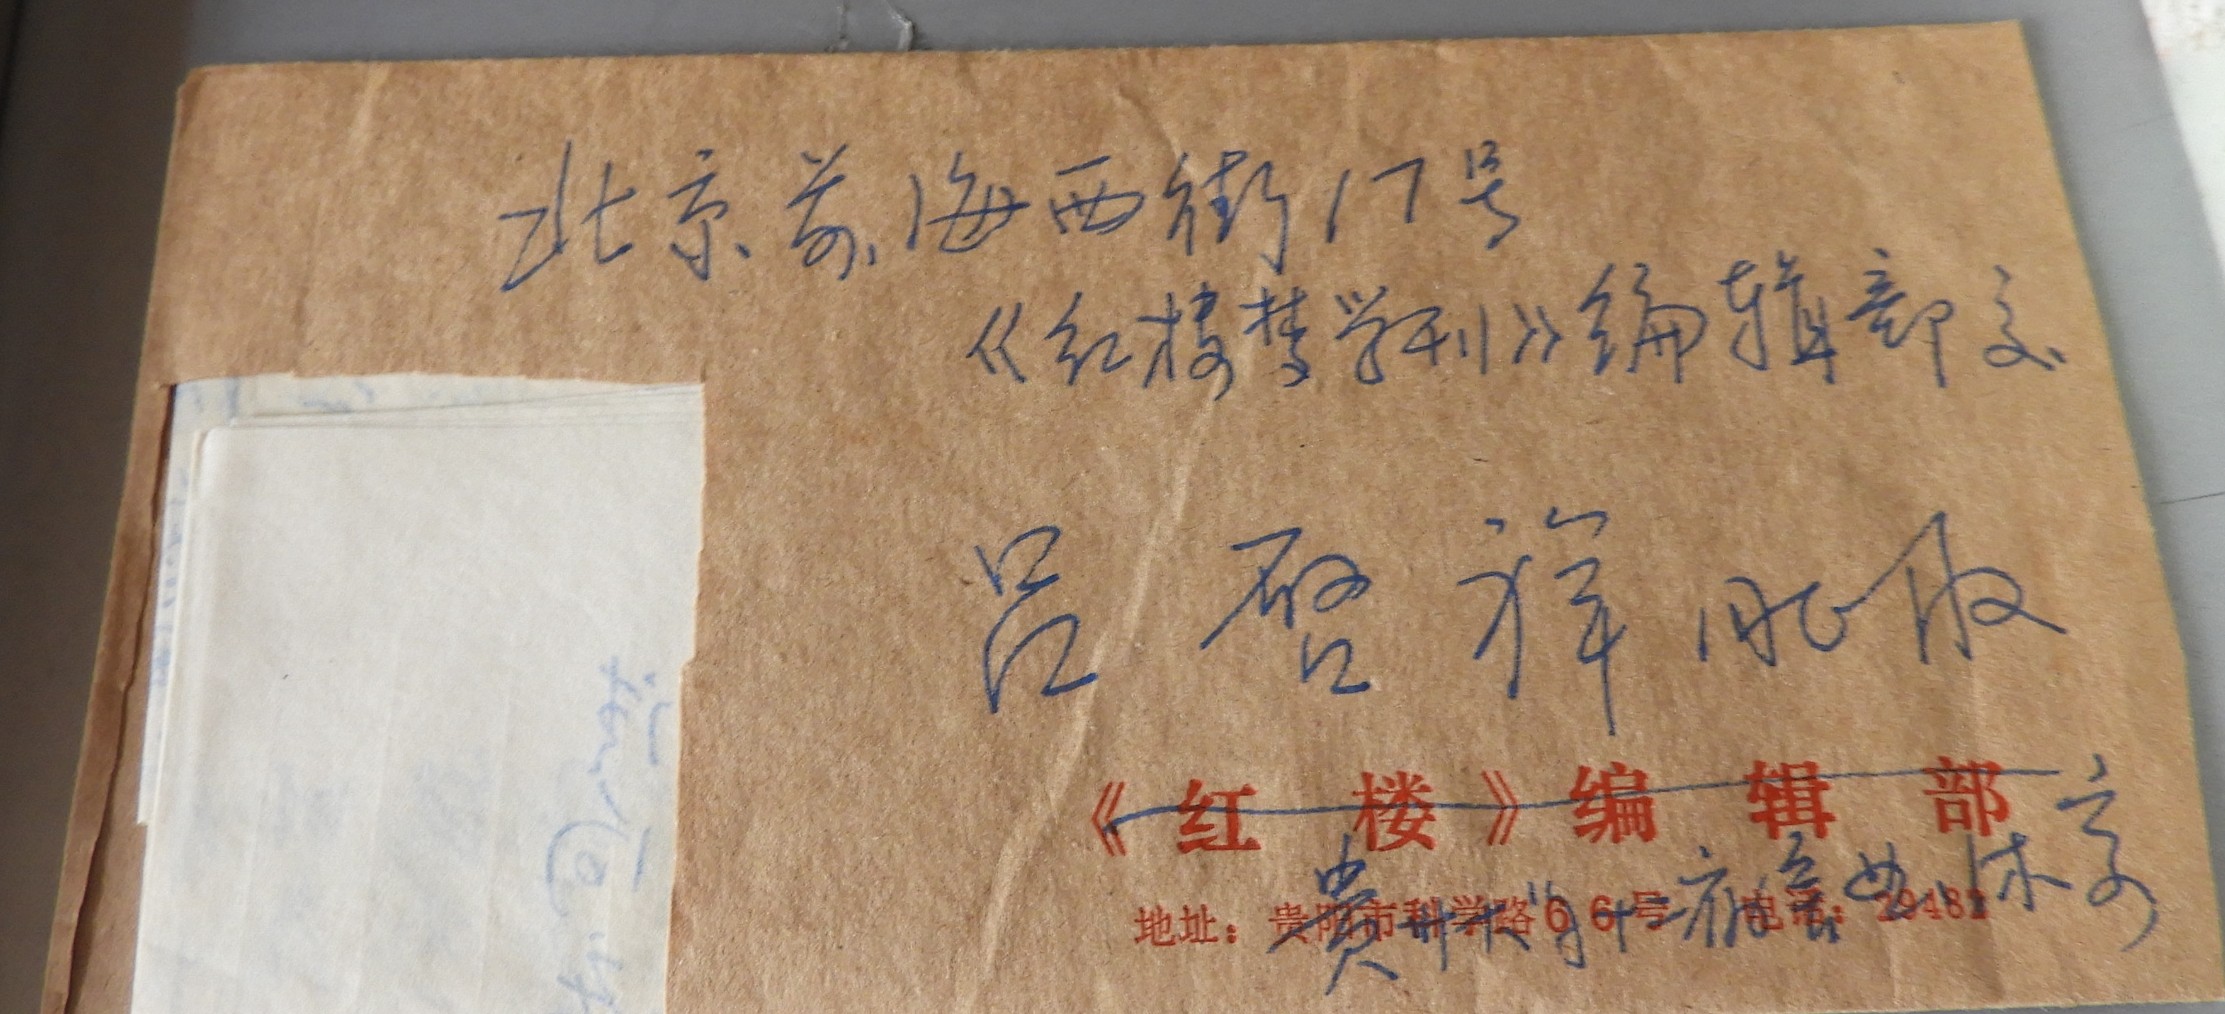 北京前海西街17号
《红楼梦学刊》编辑部交
吕启祥同志收
《红楼》编辑部
地址：贵阳市科学路66号 电话：29482
贵州